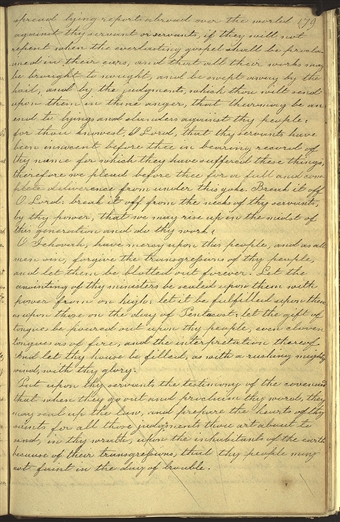 spread lying reports abroad over the world
against thy servant or servants, if they will not
repent when the everlasting gospel shall be proclai
med in their ears, and that all their works may
be brought to naught, and be swept away by the
hail, and by the judgments, which thou wilt send
upon them in thine anger, that there may be an
end to lyings and slanders against thy people;
for thou knowest, O Lord, that thy servants have
been innocent before thee in bearing record of
thy name for which they have suffered these things,
therefore we plead before thee for a full and com
plete deliverence from under this yoke. Break it off
O Lord: break it off from the necks of thy servants,
by thy power, that we may rise up in the midst of
this generation and do thy work!
O Jehovah, have mercy upon this people, and as all
men sin, forgive the transgressions of thy people,
and let them be blotted out forever. Let the
anointing of thy ministers be sealed upon them with
power from on high: let it be fulfilled upon them
as upon those on the day of Pentacost: let the gift of
tongues be poured out upon thy people, even cloven
tongues as of fire, and the interpretation thereof.
And let thy house be filled, as with a rushing mighty
wind, with thy glory.
Put upon thy servants the testimony of the covenant
that when they go out and proclaim thy word, they
may seal up the law, and prepare the hearts of thy
saints for all those judgments thou art about to
send, in thy wrath, upon the inhabitants of the earth
because of their transgressions, that thy people may
not faint in the day of trouble.